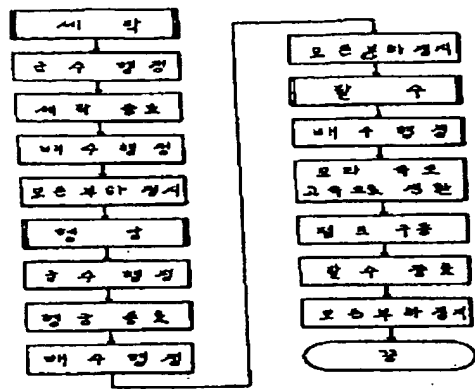 세 탁
급 수 행 정
세 탁 종 료
배 수 행 정
모든 부하 정지
헹 굼
급 수 행 정
헹 굼 종 료
배 수 행 정
모든 부하 정지
탈 수
배 수 행 정
모 타 속 도
고속으로 전환
펌프 구동
탈 수 종 료
모든 부하 정지
끝